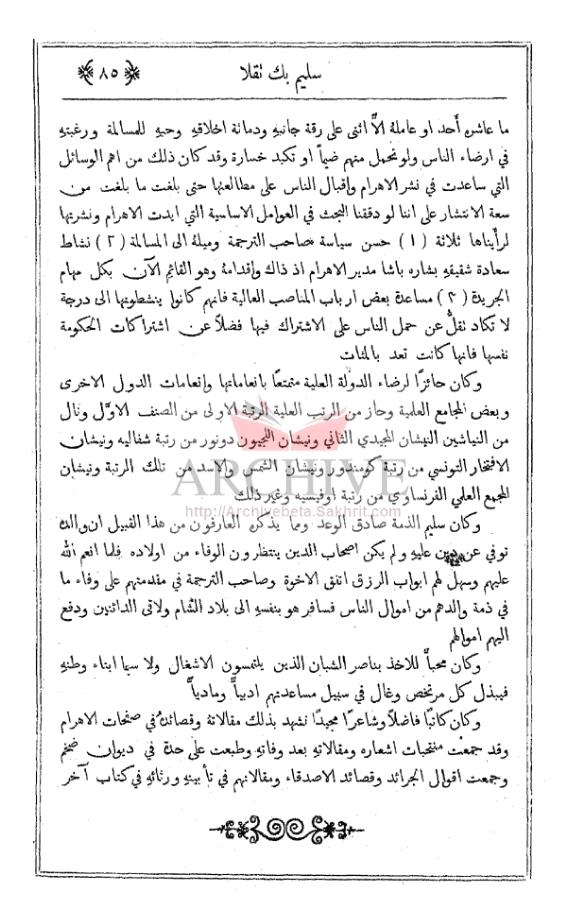 سليم بك تقلا
﴿٨٥﴾
ما عاشره أحد او عامله الاَّ اثنى على رقة جانبهِ ودماثة اخلاقهِ وحبهِ للمسالمة ورغبتهِ
في ارضاء الناس ولو تحمل منهم ضيماً او تكبد خسارة وقد كان ذلك من اهم الوسائل
التي ساعدت في نشر الاهرام وإقبال الناس على مطالعتها حتى بلغت ما بلغت من
سعة الانتشار على اننا لو دققنا البحث في العوامل الاساسية التي ايدت الاهرام ونشرتها
لرأيناها ثلاثة (١) حسن سياسة صاحب الترجمة وميله الى المسالمة (٢) نشاط
سعادة شقيقهِ بشاره باشا مدير الاهرام اذ ذاك وإقدامهُ وهو القائم الآن بكل مهام
الجريدة (٣) مساعدة بعض ارباب المناصب العالية فانهم كانوا ينشطونها الى درجة
لا تكاد تقلُّ عن حمل الناس على الاشتراك فيها فضلاً عن اشتراكات الحكومة
نفسها فانها كانت تعد بالمئات
وكان حائزًا لرضاء الدولة العلية متمتعًا بانعاماتها وإنعامات الدول الاخرى
وبعض المجامع العلمية وحاز من الرتب العلية الرتبة الاولى من الصنف الاوَّل ونال
من النياشين النيشان المجيدي الثاني ونيشان اللجيون دونور من رتبة شفاليه ونيشان
الافتخار التونسي من رتبة كومندور ونيشان الشمس والاسد من تلك الرتبة ونيشان
المجمع العلمي الفرنساوي من رتبة اوفيسيه وغير ذلك
ARCHIVE
http://Archivebeta.Sakhrit.com
وكان سليم الذمة صادق الوعد ومما يذكره العارفون من هذا القبيل ان والده
توفي عن دين عليهِ ولم يكن اصحاب الدين ينتظرون الوفاء من اولاده فلما انعم الله
عليهم وسهل لهم ابواب الرزق اتفق الاخوة وصاحب الترجمة في مقدمتهم على وفاء ما
في ذمة والدهم من اموال الناس فسافر هو بنفسهِ الى بلاد الشام ولاقى الدائنين ودفع
اليهم اموالهم
وكان محباً للاخذ بناصر الشبان الذين يلتمسون الاشغال ولا سيما ابناء وطنهِ
فيبذل كل مرتخص وغال في سبيل مساعدتهم ادبياً ومادياً
وكان كاتبًا فاضلاً وشاعرًا مجيدًا تشهد بذلك مقالاته وقصائدهُ في صفحات الاهرام
وقد جمعت منتخبات اشعاره ومقالاتهِ بعد وفاتهِ وطبعت على حدة في ديوان ضخم
وجمعت اقوال الجرائد وقصائد الاصدقاء ومقالاتهم في تأبينهِ ورثائهِ في كتاب آخر